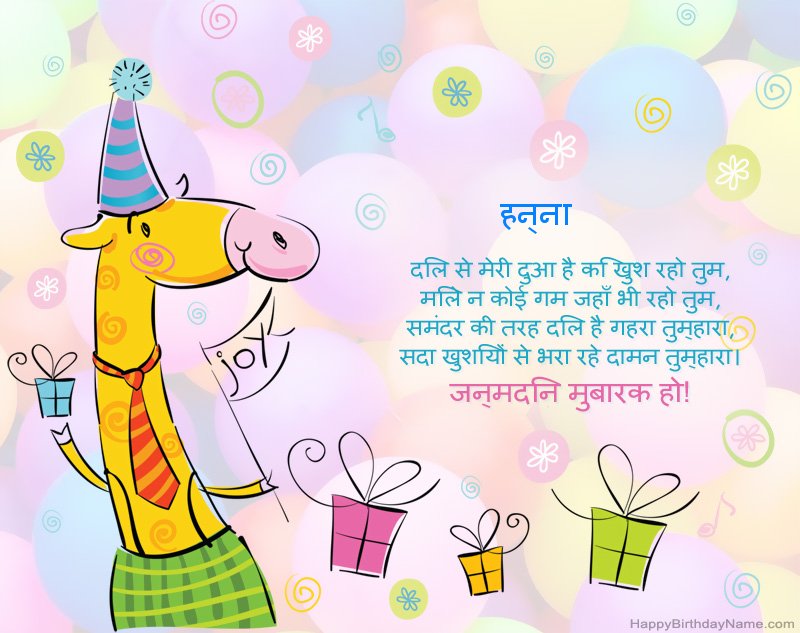 हन्ना
दिल से मेरी दुआ है कि खुश रहो तुम,
मिले न कोई गम जहाँ भी रहो तुम,
समंदर की तरह दिल है गहरा तुम्हारा,
सदा खुशियों से भरा रहे दामन तुम्हारा।
जन्मदिन मुबारक हो!
joy
HappyBirthdayName.com